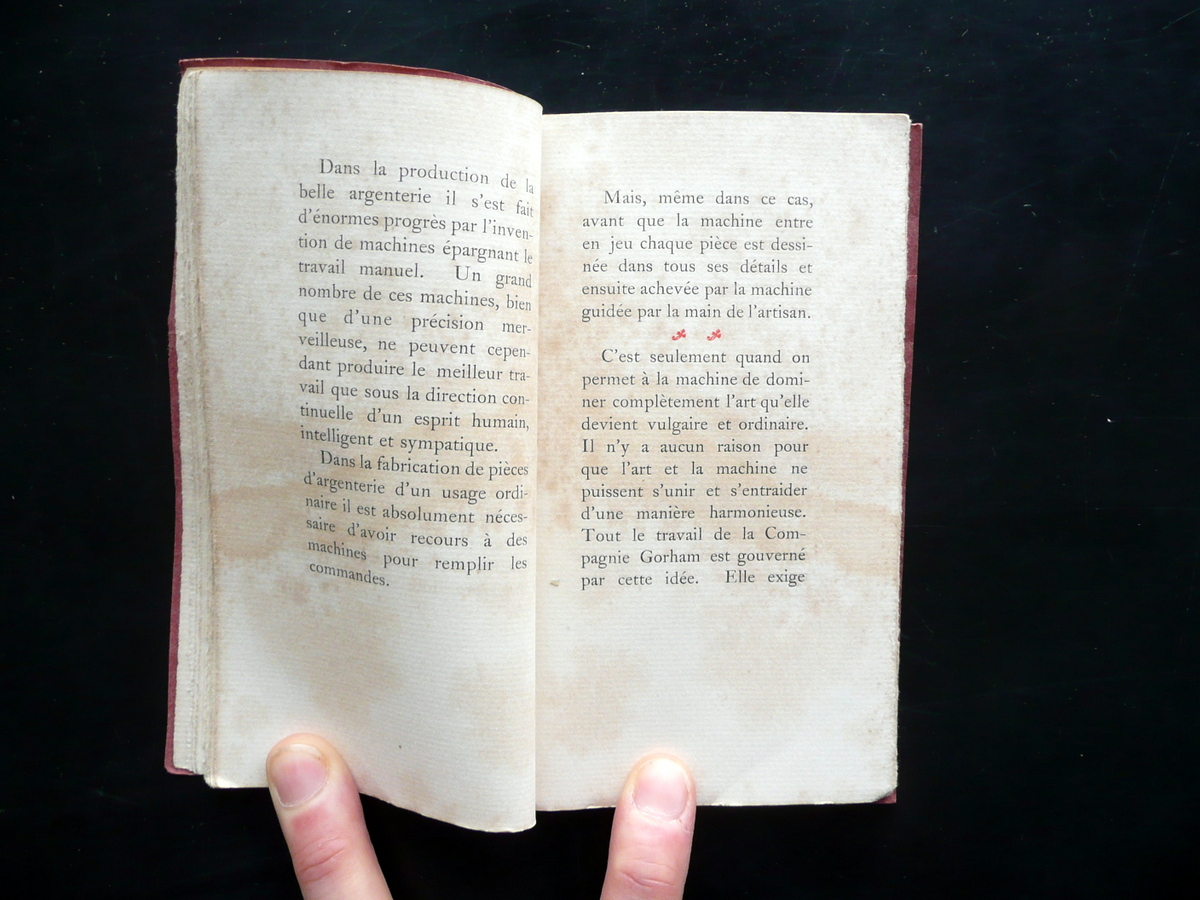 Dans la production de la
belle argenterie il s'est fait
d'énormes progrès par l'inven-
tion de machines épargnant le
travail manuel. Un grand
nombre de ces machines, bien
que d'une précision mer-
veilleuse, ne peuvent cepen-
dant produire le meilleur tra-
vail que sous la direction con-
tinuelle d'un esprit humain,
intelligent et sympatique.
Dans la fabrication de pièces
d'argenterie d'un usage ordi-
naire il est absolument néces-
saire d'avoir recours à des
machines pour remplir les
commandes.
Mais, même dans ce cas,
avant que la machine entre
en jeu chaque pièce est dessi-
née dans tous ses détails et
ensuite achevée par la machine
guidée par la main de l'artisan.
C'est seulement quand on
permet à la machine de domi-
ner complètement l'art qu'elle
devient vulgaire et ordinaire.
Il n'y a aucun raison pour
que l'art et la machine ne
puissent s'unir et s'entraider
d'une manière harmonieuse.
Tout le travail de la Com-
pagnie Gorham est gouverné
par cette idée. Elle exige